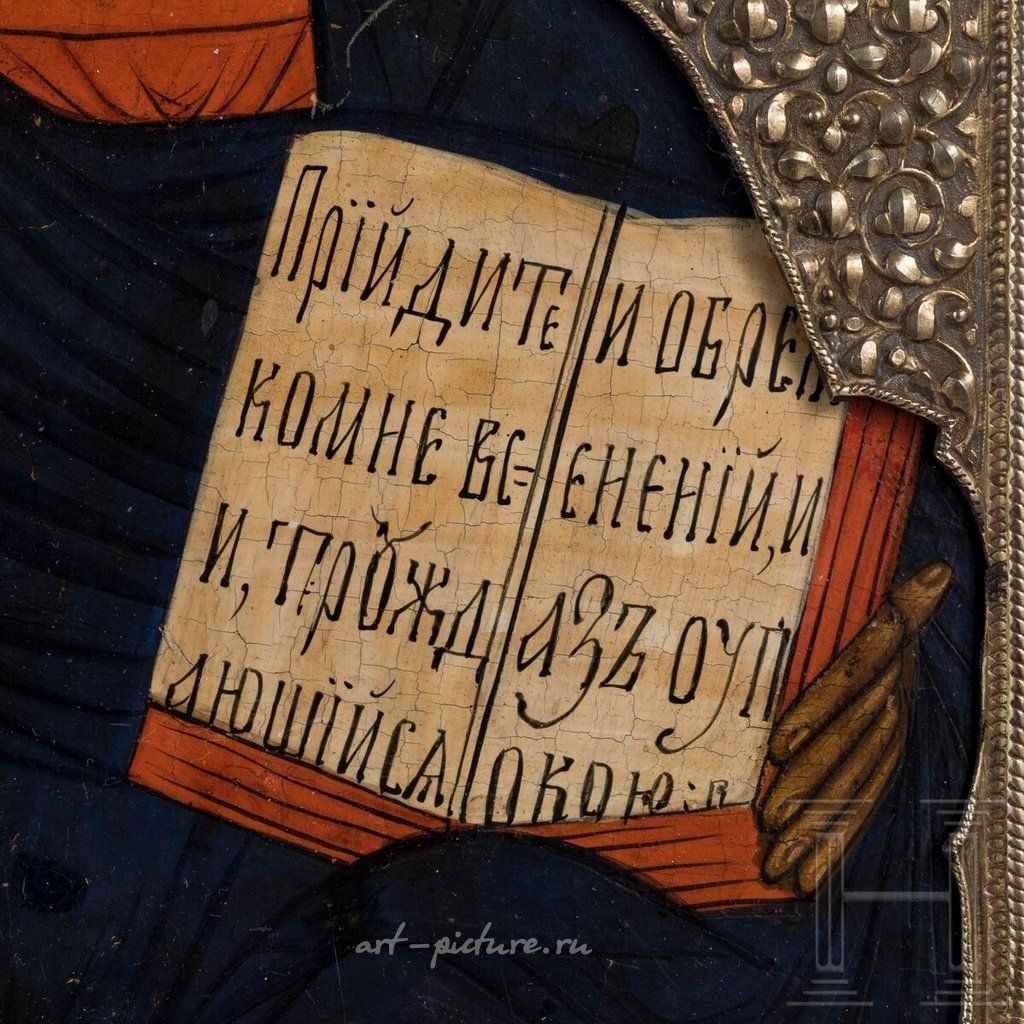 Прїйдите
комне вс=
и, трȣжд
ающїйсѧ
и обрем
ененїй, и
азъ оуп
окою:
art-picture.ru